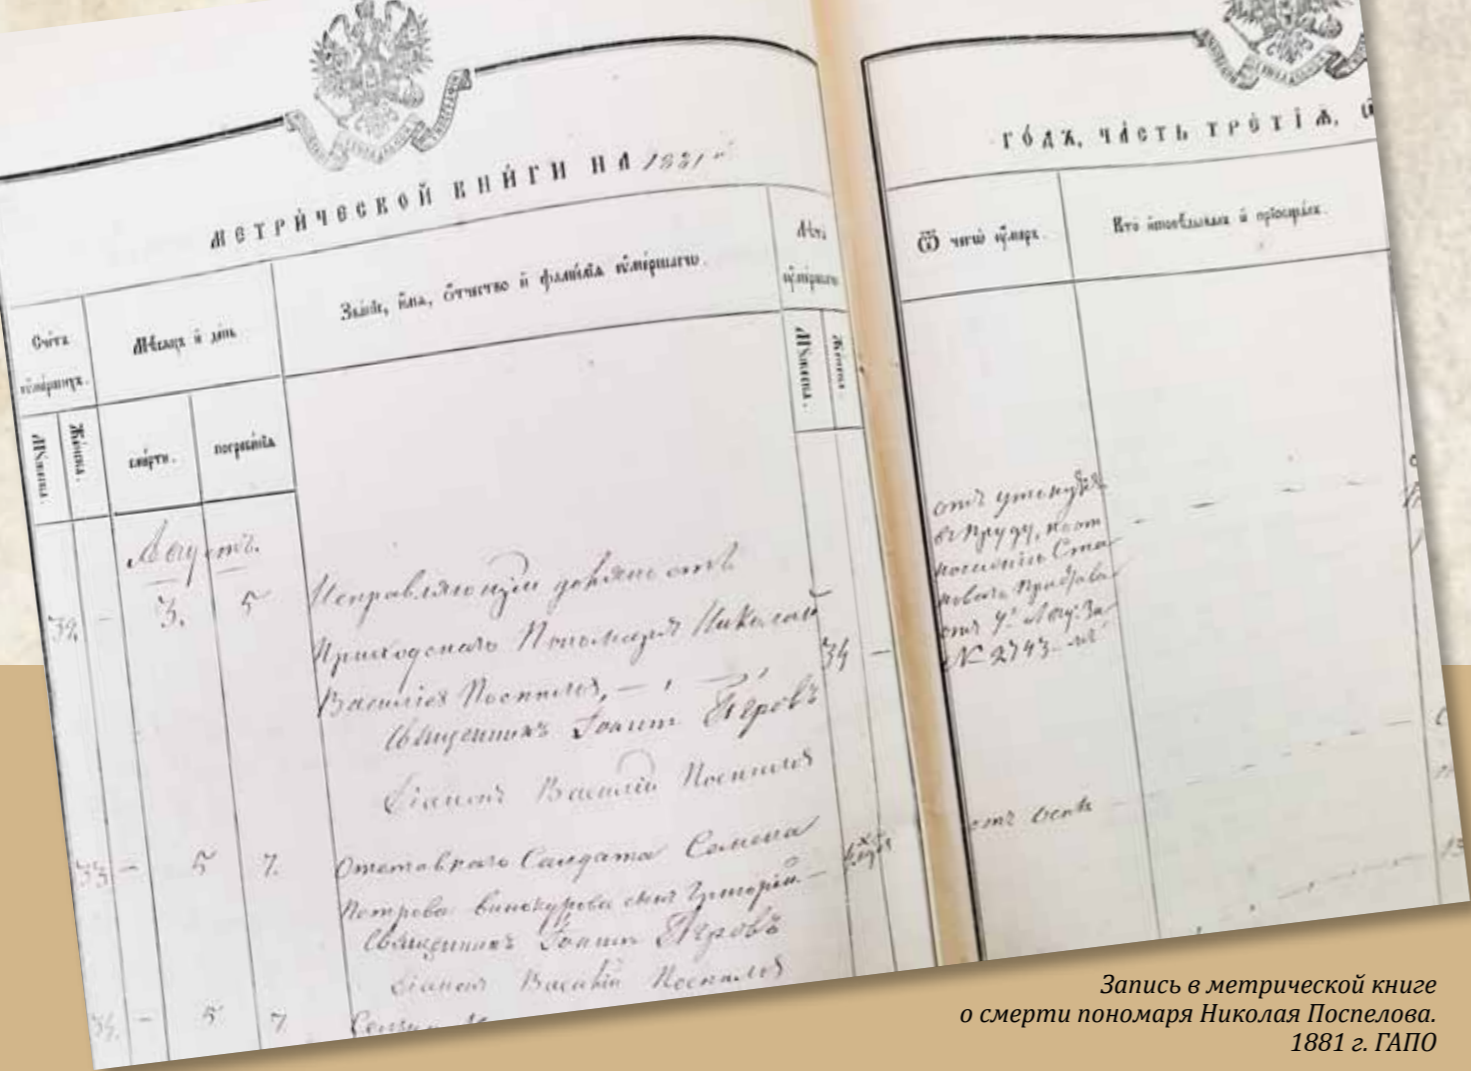 МЕТРИ́ЧЕСКОЙ КНИ́ГИ НА 1881 й
Сче́тъ умершихъ.
Му́жеска.
Же́нска.
Мѣсяцъ и день
сме́рти.
погребе́нія
Зва́ніе, и́мя, о́тчество и фами́лія уме́ршаго.
Лѣта уме́ршаго
Му́жеска.
Же́нска.
ГО́ДЪ, ЧА́СТЬ ТРЕ́ТІЯ,
Ѿ чегѡ у́меръ.
Кто исповѣдывалъ и пріобщалъ.
Августъ.
32. - 3. 5
Исправляющій должность
Приходскаго Пономаря Николай
Васильевъ Поспѣловъ, 34 -
Священникъ Іоаннъ Пѣровъ
Діаконъ Василій Поспѣловъ
отъ утонутія
въ пруду, по от
ношенію Ста
новаго Пристава
отъ 4 Авгу. За
№ 2743
33 - 5 7.
Отставнаго Солдата Семена
Петрова Винокурова сынъ Григорій.
Священникъ Іоаннъ Пѣровъ
Діаконъ Василій Поспѣловъ
отъ оспы
34. - 5 7
Запись в метрической книге
о смерти пономаря Николая Поспелова.
1881 г. ГАПО